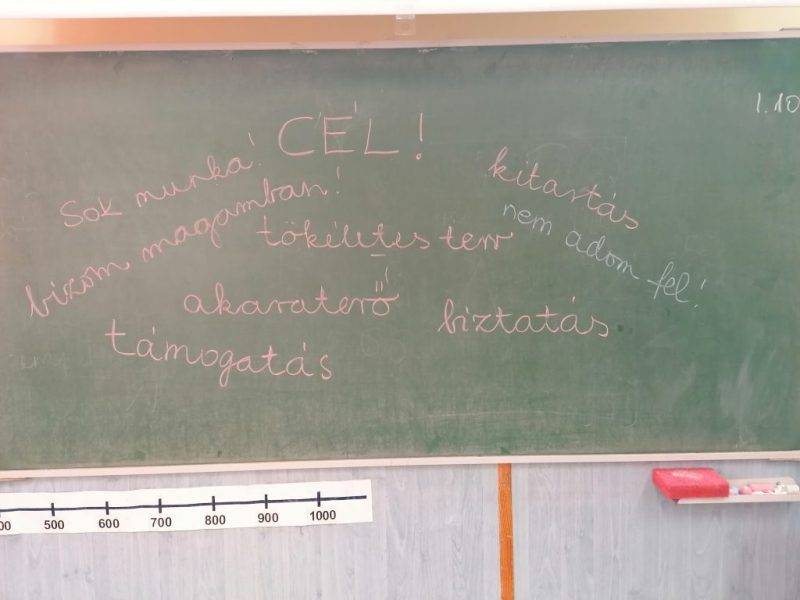 1.10
CÉL!
Sok munka!
kitartás
bízom magamban!
nem adom fel!
tökéletes terv
akaraterő
biztatás
támogatás
500 600 700 800 900 1000